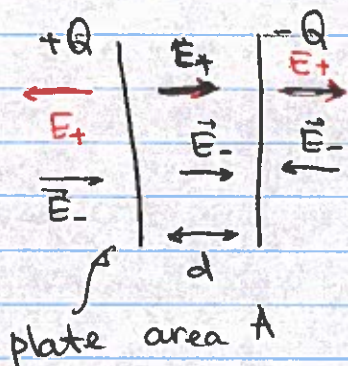 +Q -Q
E₊ E⃗₊ E₊
E⃗₋ E⃗₋ E⃗₋
d
plate area A